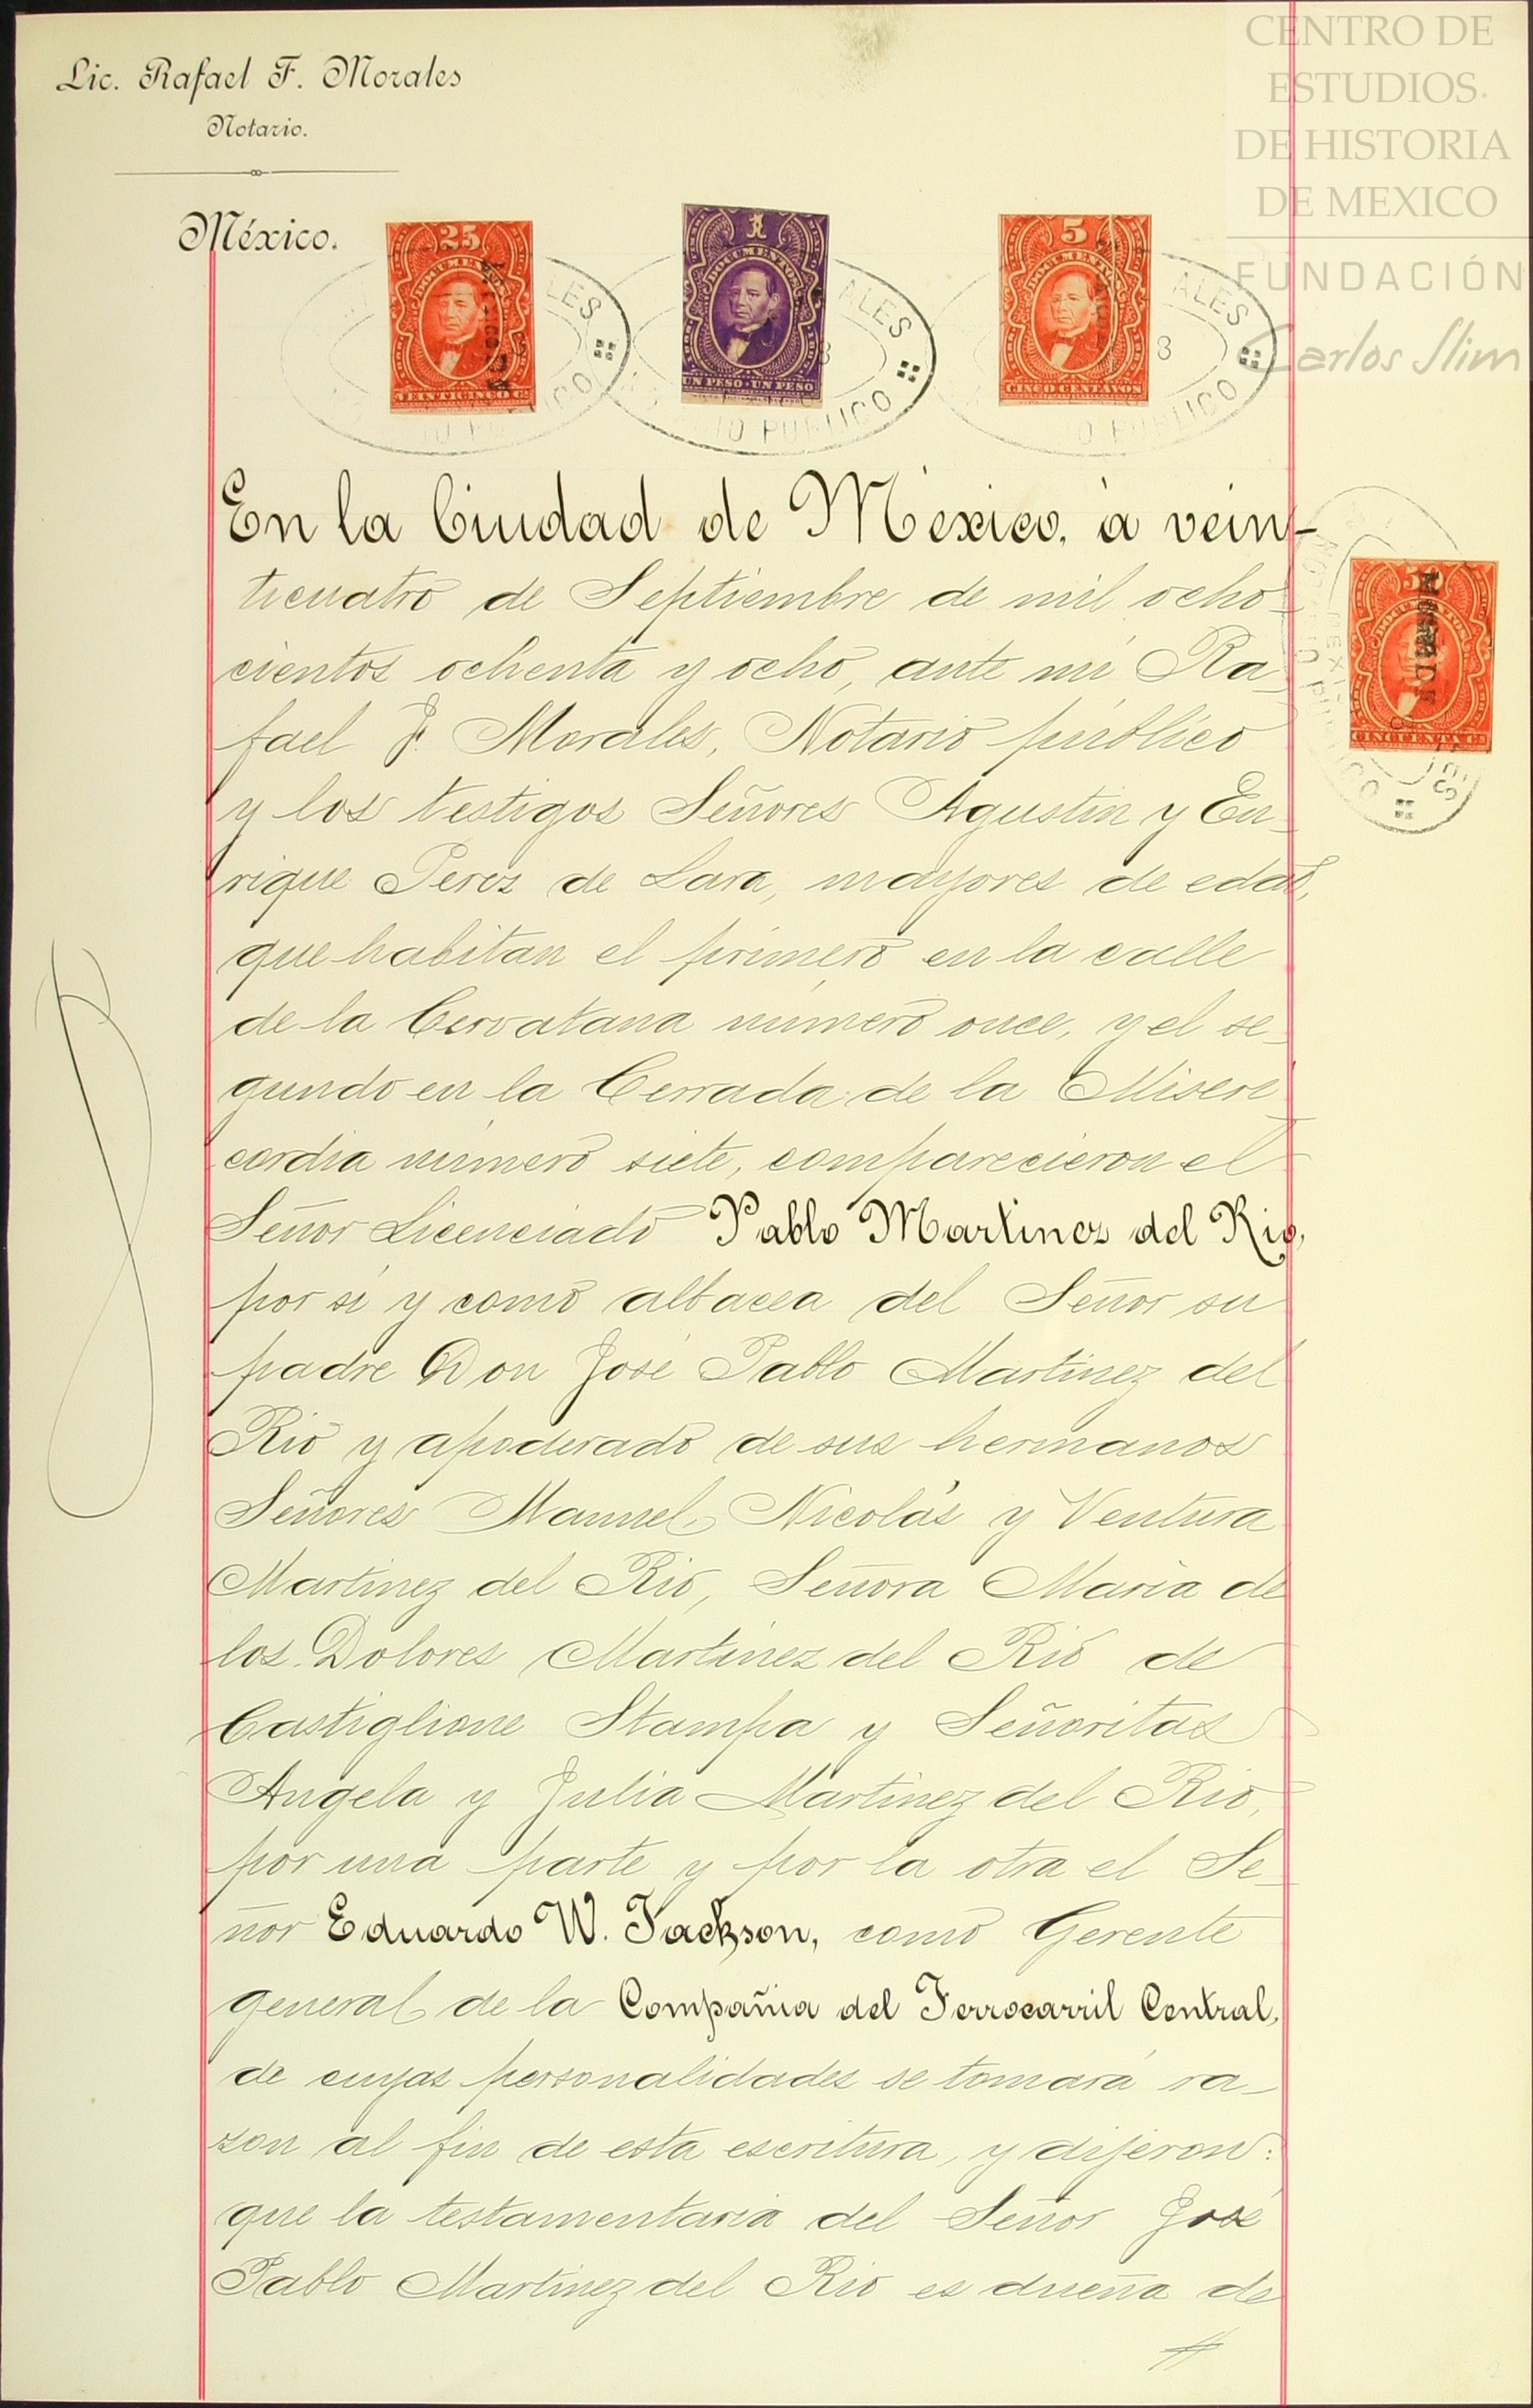 Lic. Rafael F. Morales
Notario.
México.
CENTRO DE
ESTUDIOS
DE HISTORIA
DE MEXICO
FUNDACIÓN
Carlos Slim
25
DOCUMENTOS
VEINTICINCO Cs
1
DOCUMENTOS
UN PESO · UN PESO
5
DOCUMENTOS
CINCO CENTAVOS
ALES
PUBLICO
ALES
PUBLICO
50
DOCUMENTOS
CINCUENTA Cs
En la Ciudad de México, á vein-
ticuatro de Septiembre de mil ocho-
cientos ochenta y ocho, ante mi Ra-
fael F. Morales, Notario público
y los testigos Señores Agustin y En-
rique Perez de Lara, mayores de edad,
que habitan el primero en la calle
de la Cervatana número once, y el se-
gundo en la Cerrada de la Miseri-
cordia número siete, comparecieron el
Señor Licenciado Pablo Martinez del Rio,
por sí y como albacea del Señor su
padre Don José Pablo Martinez del
Rio y apoderado de sus hermanos
Señores Manuel, Nicolás y Ventura
Martinez del Rio, Señora Maria de
los Dolores Martinez del Rio de
Castiglione Stampa y Señoritas
Angela y Julia Martinez del Rio,
por una parte y por la otra el Se-
ñor Eduardo W. Jackson, como Gerente
general de la Compañia del Ferrocarril Central,
de cuyas personalidades se tomará ra-
zon al fin de esta escritura, y dijeron:
que la testamentaria del Señor José
Pablo Martinez del Rio es dueña de